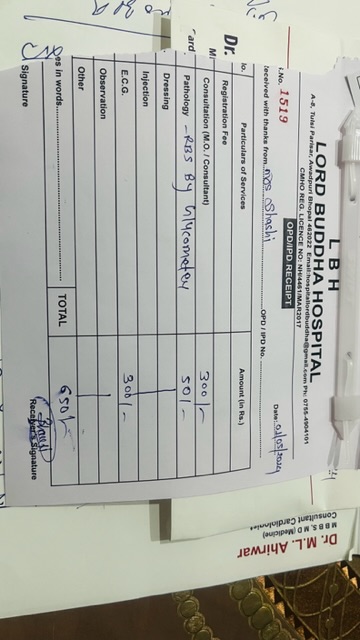 L B H
LORD BUDDHA HOSPITAL
A-8, Tulsi Parisar, Awadpuri Bhopal 462022 Email:hospitallordbuddha@gmail.com Ph: 0755-4904101
CMHO REG. LICENCE NO: NH/4461/MAR2017
OPD/IPD RECEIPT
.No. 1519
Date: 02/05/2024
eceived with thanks from Mrs Shashi OPD / IPD No.
lo. Particulars of Services Amount (in Rs.)
Registration Fee
Consultation (M.O. / Consultant) 300/-
Pathology - RBS By Glycometer 50/-
Dressing
Injection
E.C.G. 300/-
Observation
Other
es in words TOTAL 650/-
Signature Receiver's Signature
Dr.
ard
Dr. M.L. Ahirwar
M B B S, M D (Medicine)
Consultant Cardiologist